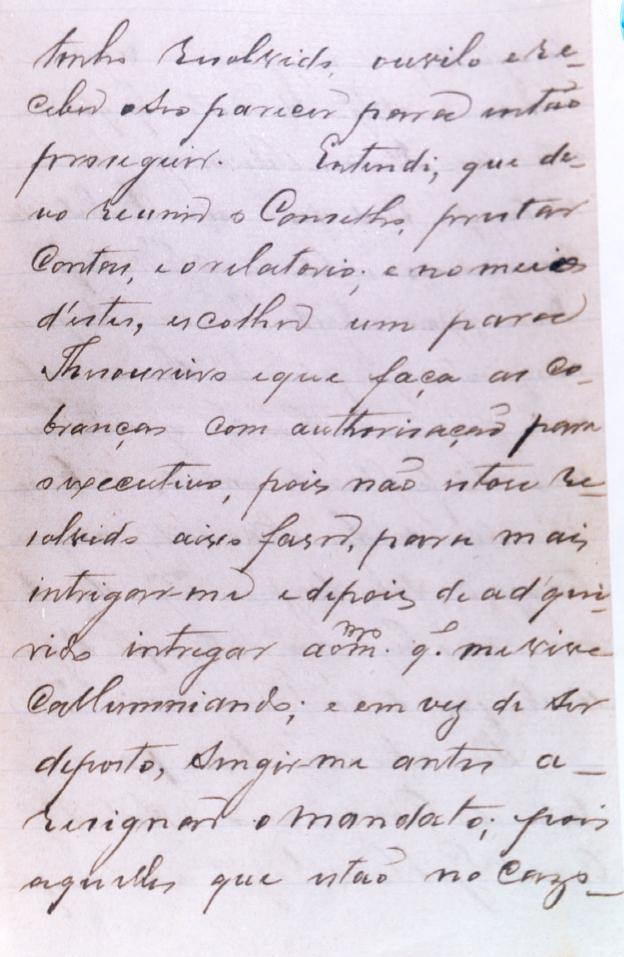 tenho resolvido, ouvilo e re-
ceber o seo parecer para então
proseguir. Entendi, que de-
vo reunir o Conselho, prestar
Contas, e o relatorio; e no meio
d'estes, escolher um para
Thesoureiro e que faça as co-
branças com authorisação para
o executivo, pois não estou re-
solvido a isso faser, para mais
intrigar-me e depois de adqui-
rido intregar ao mmo. q. me vive
Callumniando; e em vez de ser
deposto, singir-me antes a-
resignar o mandato; pois
aquelles que estão no Cazo-